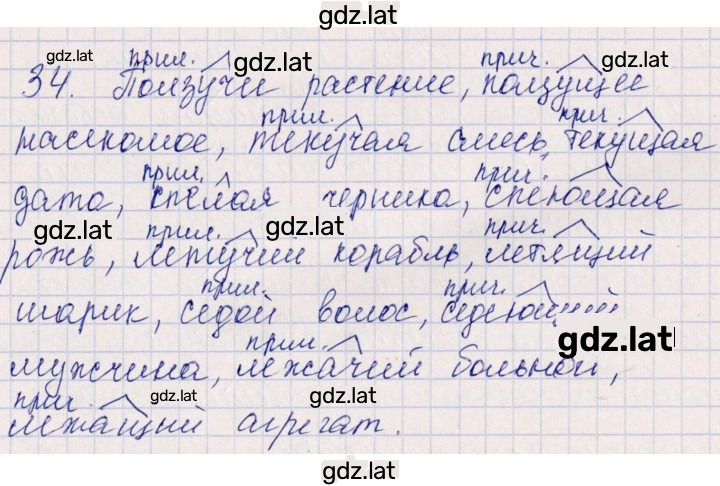 gdz.lat
gdz.lat прил. gdz.lat прич. gdz.lat
34. Ползучее растение, ползущее
gdz.lat прил. gdz.lat прич.
насекомое, текучая смесь, текущая
прил. gdz.lat прич.
дата, спелая черника, спеющая
gdz.lat прил. gdz.lat прич.
рожь, летучий корабль, летящий
прил. прич.
шарик, седой волос, седеющий
прил. gdz.lat
мужчина, лежачий больной,
прич. gdz.lat gdz.lat
лежащий агрегат.
gdz.lat